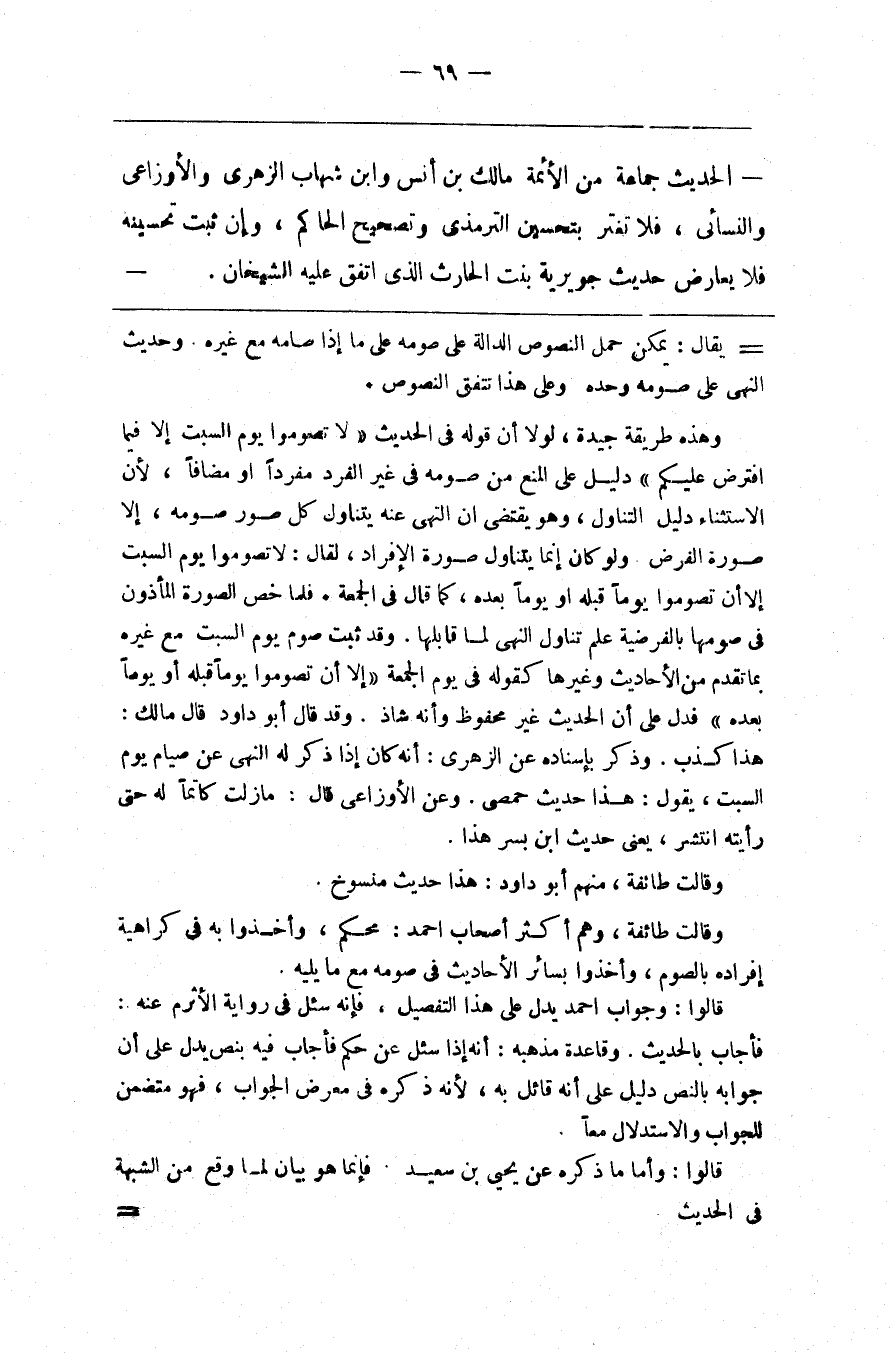 — ٦٩ —
— الحديث جماعة من الأئمة مالك بن أنس وابن شهاب الزهرى والأوزاعى
والنسائى ، فلا تغتر بتحسين الترمذى وتصحيح الحاكم ، وإن ثبت تحسينه
فلا يعارض حديث جويرية بنت الحارث الذى اتفق عليه الشيخان . —
= يقال : يمكن حمل النصوص الدالة على صومه على ما إذا صامه مع غيره . وحديث
النهى على صومه وحده وعلى هذا تتفق النصوص .
وهذه طريقة جيدة ، لولا أن قوله فى الحديث « لا تصوموا يوم السبت إلا فيما
افترض عليكم » دليل على المنع من صومه فى غير الفرد مفرداً او مضافاً ، لأن
الاستثناء دليل التناول ، وهو يقتضى ان النهى عنه يتناول كل صور صومه ، إلا
صورة الفرض . ولو كان إنما يتناول صورة الإفراد ، لقال : لا تصوموا يوم السبت
إلا أن تصوموا يوماً قبله او يوماً بعده ، كما قال فى الجمعة . فلما خص الصورة المأذون
فى صومها بالفرضية علم تناول النهى لما قابلها . وقد ثبت صوم يوم السبت مع غيره
بما تقدم من الأحاديث وغيرها كقوله فى يوم الجمعة «إلا أن تصوموا يوماً قبله أو يوماً
بعده » فدل على أن الحديث غير محفوظ وأنه شاذ . وقد قال أبو داود قال مالك :
هذا كذب . وذكر بإسناده عن الزهرى : أنه كان إذا ذكر له النهى عن صيام يوم
السبت ، يقول : هذا حديث حمصى . وعن الأوزاعى قال : مازلت كاتماً له حتى
رأيته انتشر ، يعنى حديث ابن بسر هذا .
وقالت طائفة ، منهم أبو داود : هذا حديث منسوخ .
وقالت طائفة ، وهم أكثر أصحاب احمد : محكم ، وأخذوا به فى كراهية
إفراده بالصوم ، وأخذوا بسائر الأحاديث فى صومه مع ما يليه .
قالوا : وجواب احمد يدل على هذا التفصيل ، فإنه سئل فى رواية الأثرم عنه :
فأجاب بالحديث . وقاعدة مذهبه : أنه إذا سئل عن حكم فأجاب فيه بنص يدل على أن
جوابه بالنص دليل على أنه قائل به ، لأنه ذكره فى معرض الجواب ، فهو متضمن
للجواب والاستدلال معاً .
قالوا : وأما ما ذكره عن يحيى بن سعيد . فإنما هو بيان لما وقع من الشبهة
فى الحديث =